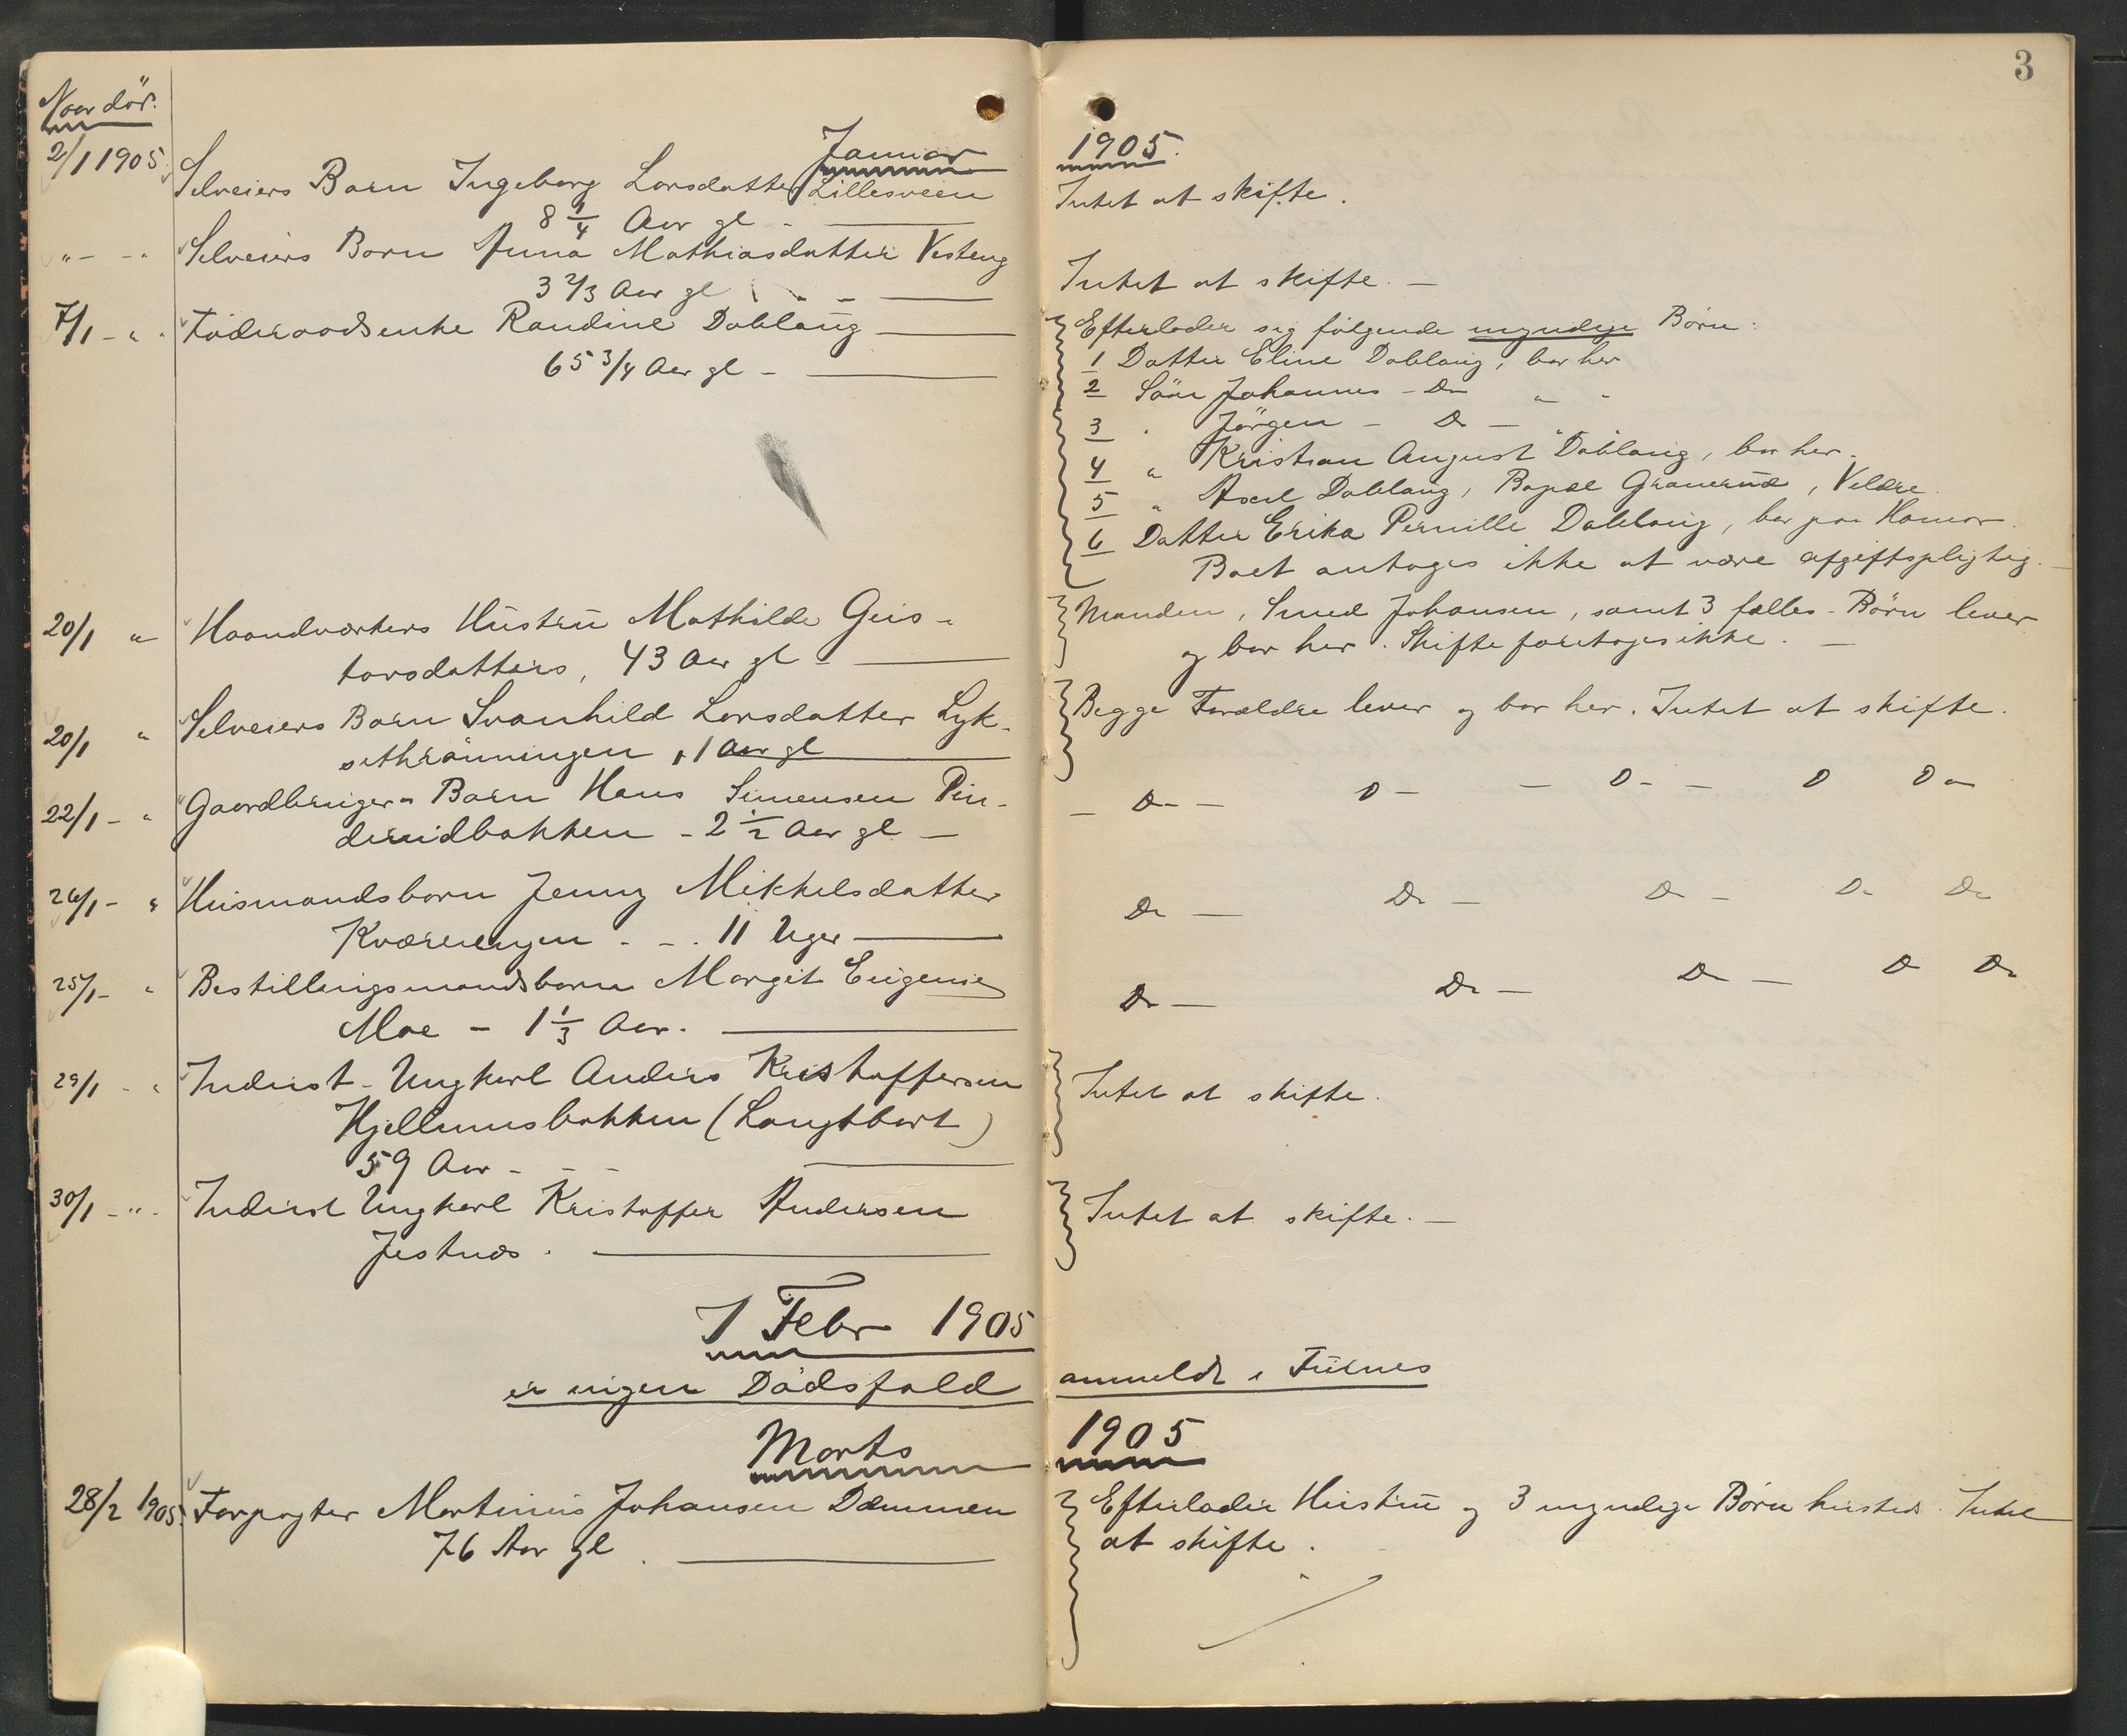 3
Naar död.
Januar 1905.
2/1 1905 Selveiers Barn Ingeborg Larsdatter Lillesveen
8 1/4 Aar gl -
Intet at skifte.
" - - " Selveiers Barn Anna Mathiasdatter Vesteng
3 2/3 Aar gl - -
Intet at skifte. -
7/1 - " . Föderaadsenke Randine Dablaug
65 3/4 Aar gl -
Efterlader sig følgende myndige Børn:
1 Datter Eline Dablaug, bor her
2 Sön Johannes - Do " -
3 . Jörgen - Do -
4 " Kristian August Dablaug, bor her.
5 " Axel Dablaug, Bopæl , Veldre.
6 Datter Erika Pernille Dablaug, bor paa Hamar.
Boet antages ikke at være afgiftspligtig. -
20/1 " Haandværkers Hustru Mathilde Gus-
tavsdatters, 43 Aar gl -
Manden, Smed Johansen, samt 3 fælles-Børn lever
og bor her. Skifte foretages ikke. -
20/1 " Selveiers Barn Svanhild Larsdatter Lyk-
sethrönningen, 1 Aar gl
Begge Forældre lever og bor her. Intet at skifte.
22/1 - " Gaardbruger- Barn Hans Simensen Pin-
derudbakken - 2 1/2 Aar gl -
- Do - D - - D - - D Do
24/1 - " Husmandsbarn Jenny Mikkelsdatter
- - . 11 Uger
Do - Do - Do - Do Do
25/1 - " Bestillingsmandsbarn Margit Eugenie
Moe - 1 1/3 Aar.
Do - Do - Do - Do Do
29/1 - " Inderst-Ungkarl Anders Kristoffersen
Hjellumsbakken (Langtbort)
59 Aar - - -
Intet at skifte.
30/1 - " - Inderst Ungkarl Kristoffer Andersen
Jestnes.
Intet at skifte. -
I Febr 1905
er ingen Dödsfald anmeldt i Furnes
Marts 1905
28/2 1905. Forpagter Martinius Johansen Dæmmen
76 Aar gl.
Efterlader Hustru og 3 myndige Børn Intet
at skifte.